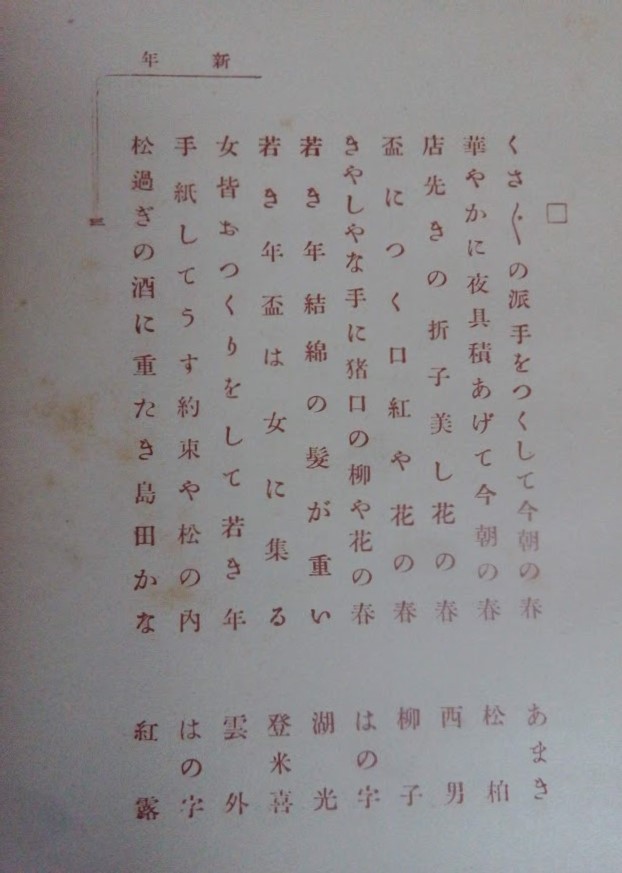 新年
三
□
くさ〴〵の派手をつくして今朝の春 あまき
華やかに夜具積あげて今朝の春 松柏
店先きの折子美し花の春 西男
盃につく口紅や花の春 柳子
きやしやな手に猪口の柳や花の春 はの字
若き年結綿の髮が重い 湖光
若き年盃は女に集る 登米喜
女皆おつくりをして若き年 雲外
手紙してうす約束や松の内 はの字
松過ぎの酒に重たき島田かな 紅露